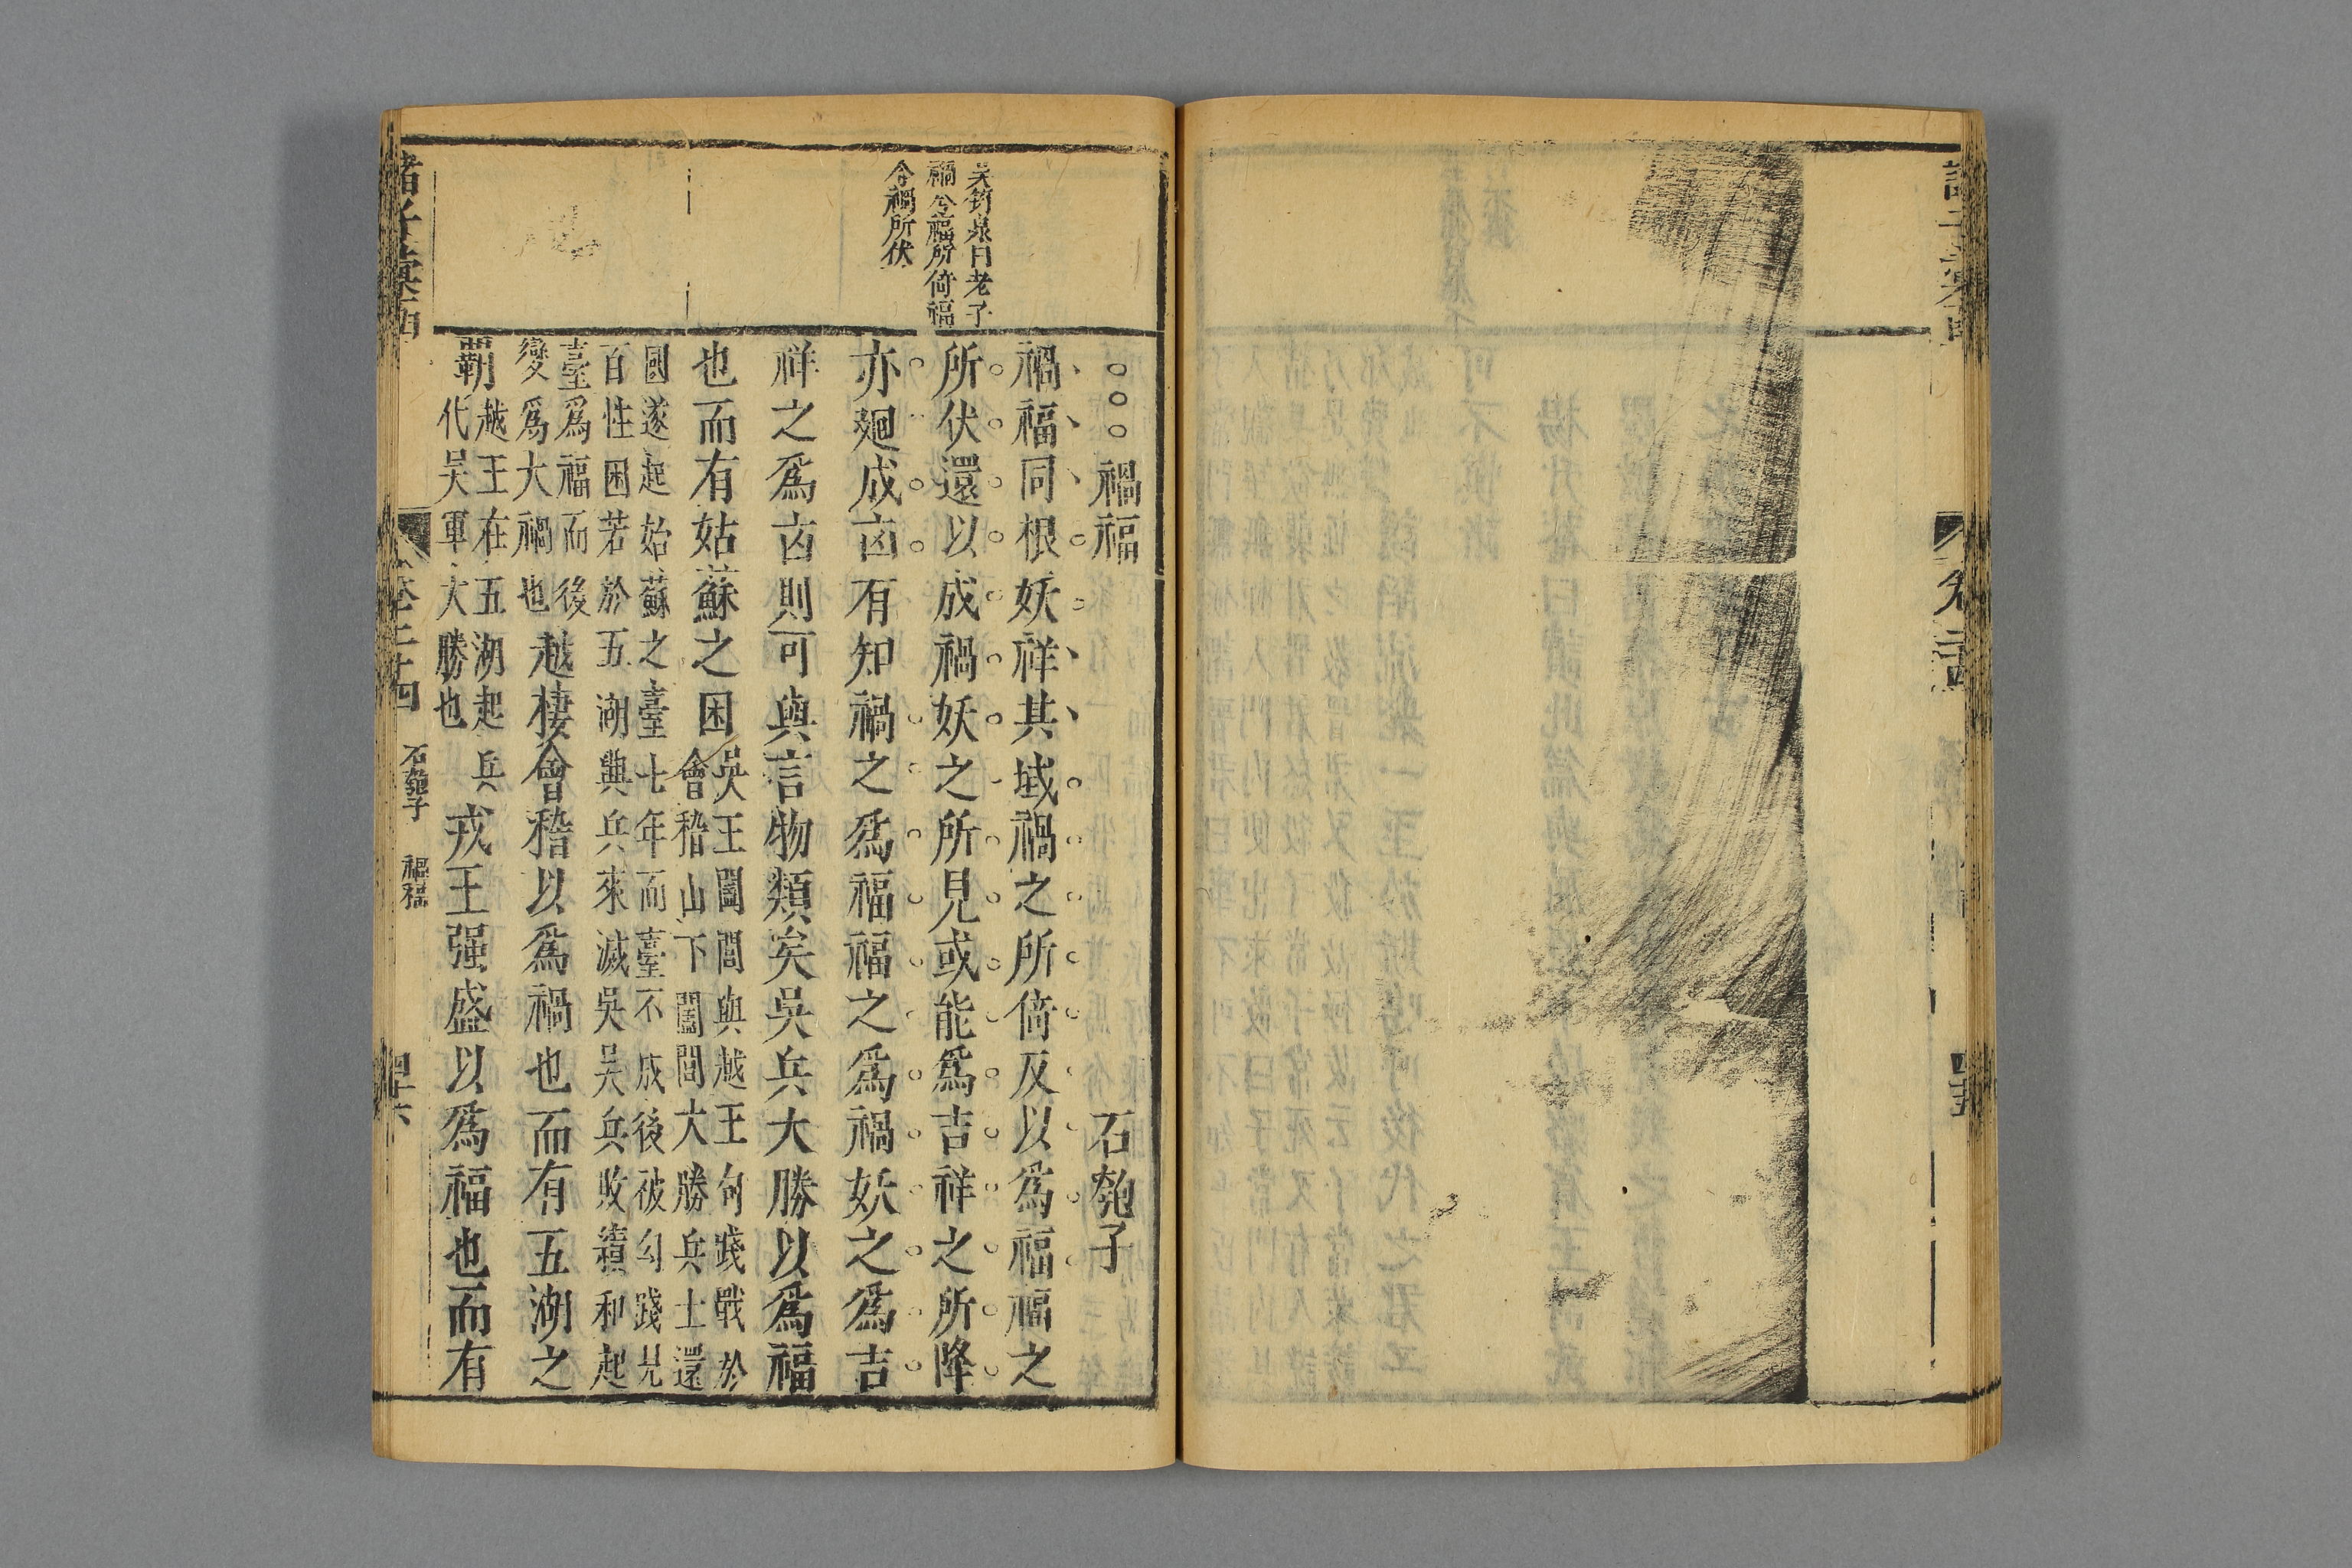 卷二十四
禍福
石匏子
吴筠泉曰老子
禍兮福所倚福
兮禍所伏
禍福同根妖祥其域禍之所倚反以為福福之
所伏還以成禍妖之所見或能為吉祥之所降
亦廻成㐫有知禍之為福福之為禍妖之為吉
祥之為㐫則可與言物類矣吳兵大勝以為福
也而有姑蘇之困
吳王闔閭與越王勾踐戰於
會稽山下闔閭大勝兵士還
國遂起始蘇之臺七年而臺不成後被勾踐見
百性困若於五湖興兵來滅吳吴兵敗績和起
臺為福而後
變為大禍也
越棲會稽以為禍也而有五湖之
覇
越王在五湖起兵
代吴軍大勝也
戎王强盛以為福也而有
諸子彙函
卷二十四
石匏子
禍福
四十六